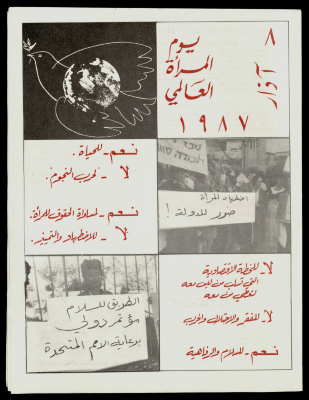 ٨
آذار
يوم
المرأة
العالمي
١٩٨٧
نعم - للحياة.
لا - لحرب النجوم.
نعم - لمساواة الحقوق للمرأة.
لا - للاضطهاد والتمييز.
اضطهاد المرأة
ضرر للدولة!
الطريق للسلام
مؤتمر دولي
برعاية الامم المتحدة
لا - للخطة الاقتصادية
التي تسلب من ليس معه
لتعطي من معه
لا - للفقر والاحتلال والحرب
نعم - للسلام والرفاهية